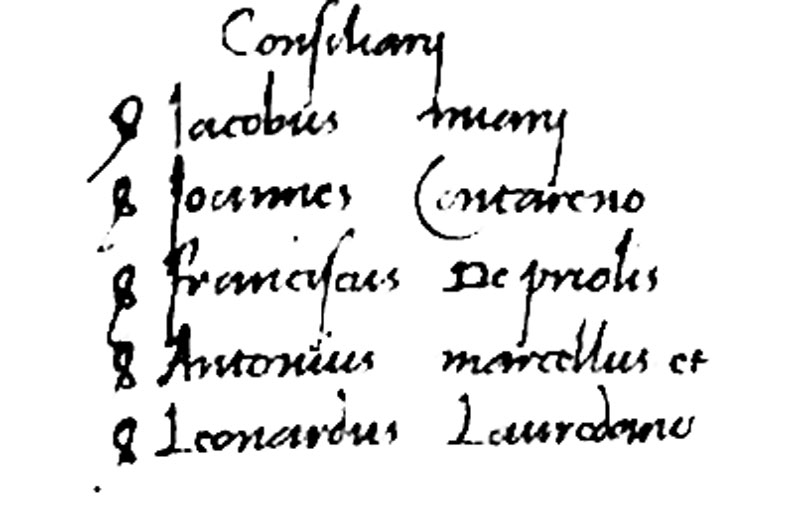 Consiliarij
8 Jacobus
8 Joannes Contareno
8 Franciscus De priolis
8 Antonius marcellus et
8 Leonardus Lauredano